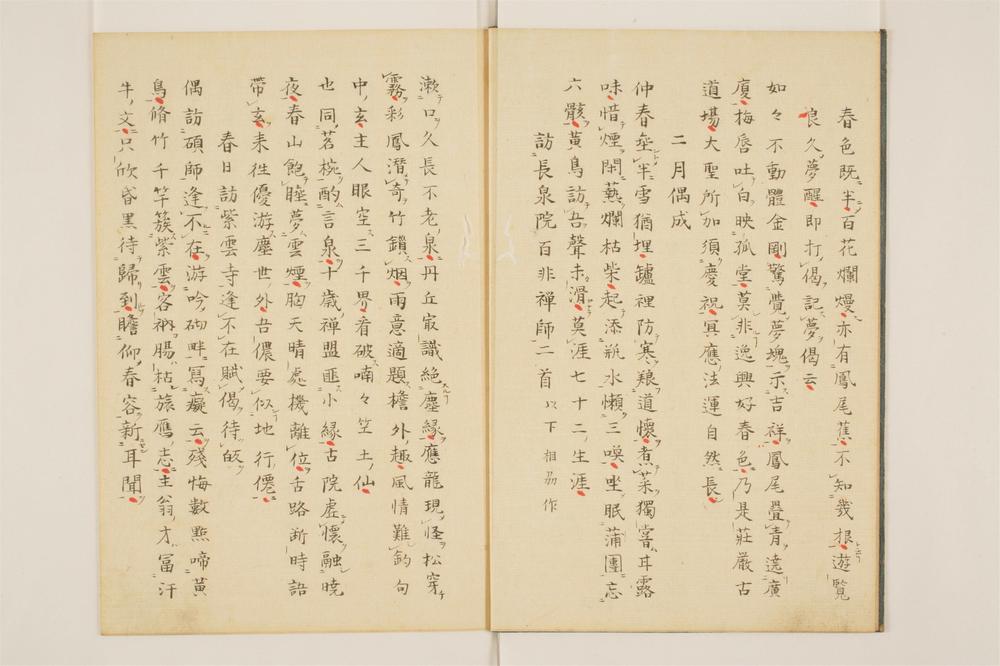 春色既半百花爛熳亦有鳳尾蕉不知幾根遊覧
良久夢醒即打偈記夢偈云
如々不動體金剛驚覺夢塊示吉祥鳳尾疊青遶廣
廈梅唇吐白映孤堂莫非逸興好春色乃是莊嚴古
道場大聖所加須慶祝冥應法運自然長
二月偶成
仲春垒半雪猶埋鑪裡防寒艱道懷煮菜獨嘗耳露
味惜煙閑爇爛枯柴起添瓶水懶三嗅坐眠蒲團忘
六骸黄鳥訪吾聲未滑莫涯七十二生涯
訪長泉院百非禅師二首 以下相刕作
漱口久長不老泉丹丘㝡識絶塵縁應龍現怪松穿
霧彩鳳潛奇竹鎖烟雨意適題檐外趣風情難鈎句
中玄主人眼空三千界看破喃々竺土仙
也同茗椀酌言泉十歳禅盟匪小縁古院虚懷融曉
夜春山飽睡夢雲煙胸天晴處機離位舌路断時語
帶玄来徃優游塵世外吾儂要似地行僊
春日訪紫雲寺逢不在賦偈待皈
偶訪碩師逢不在游吟砌畔冩癡云殘梅數點啼黄
鳥脩竹千竿簇紫雲客衲腸枯旅應志主翁才冨汗
牛文只欣昏黒待歸到瞻仰春容新耳聞